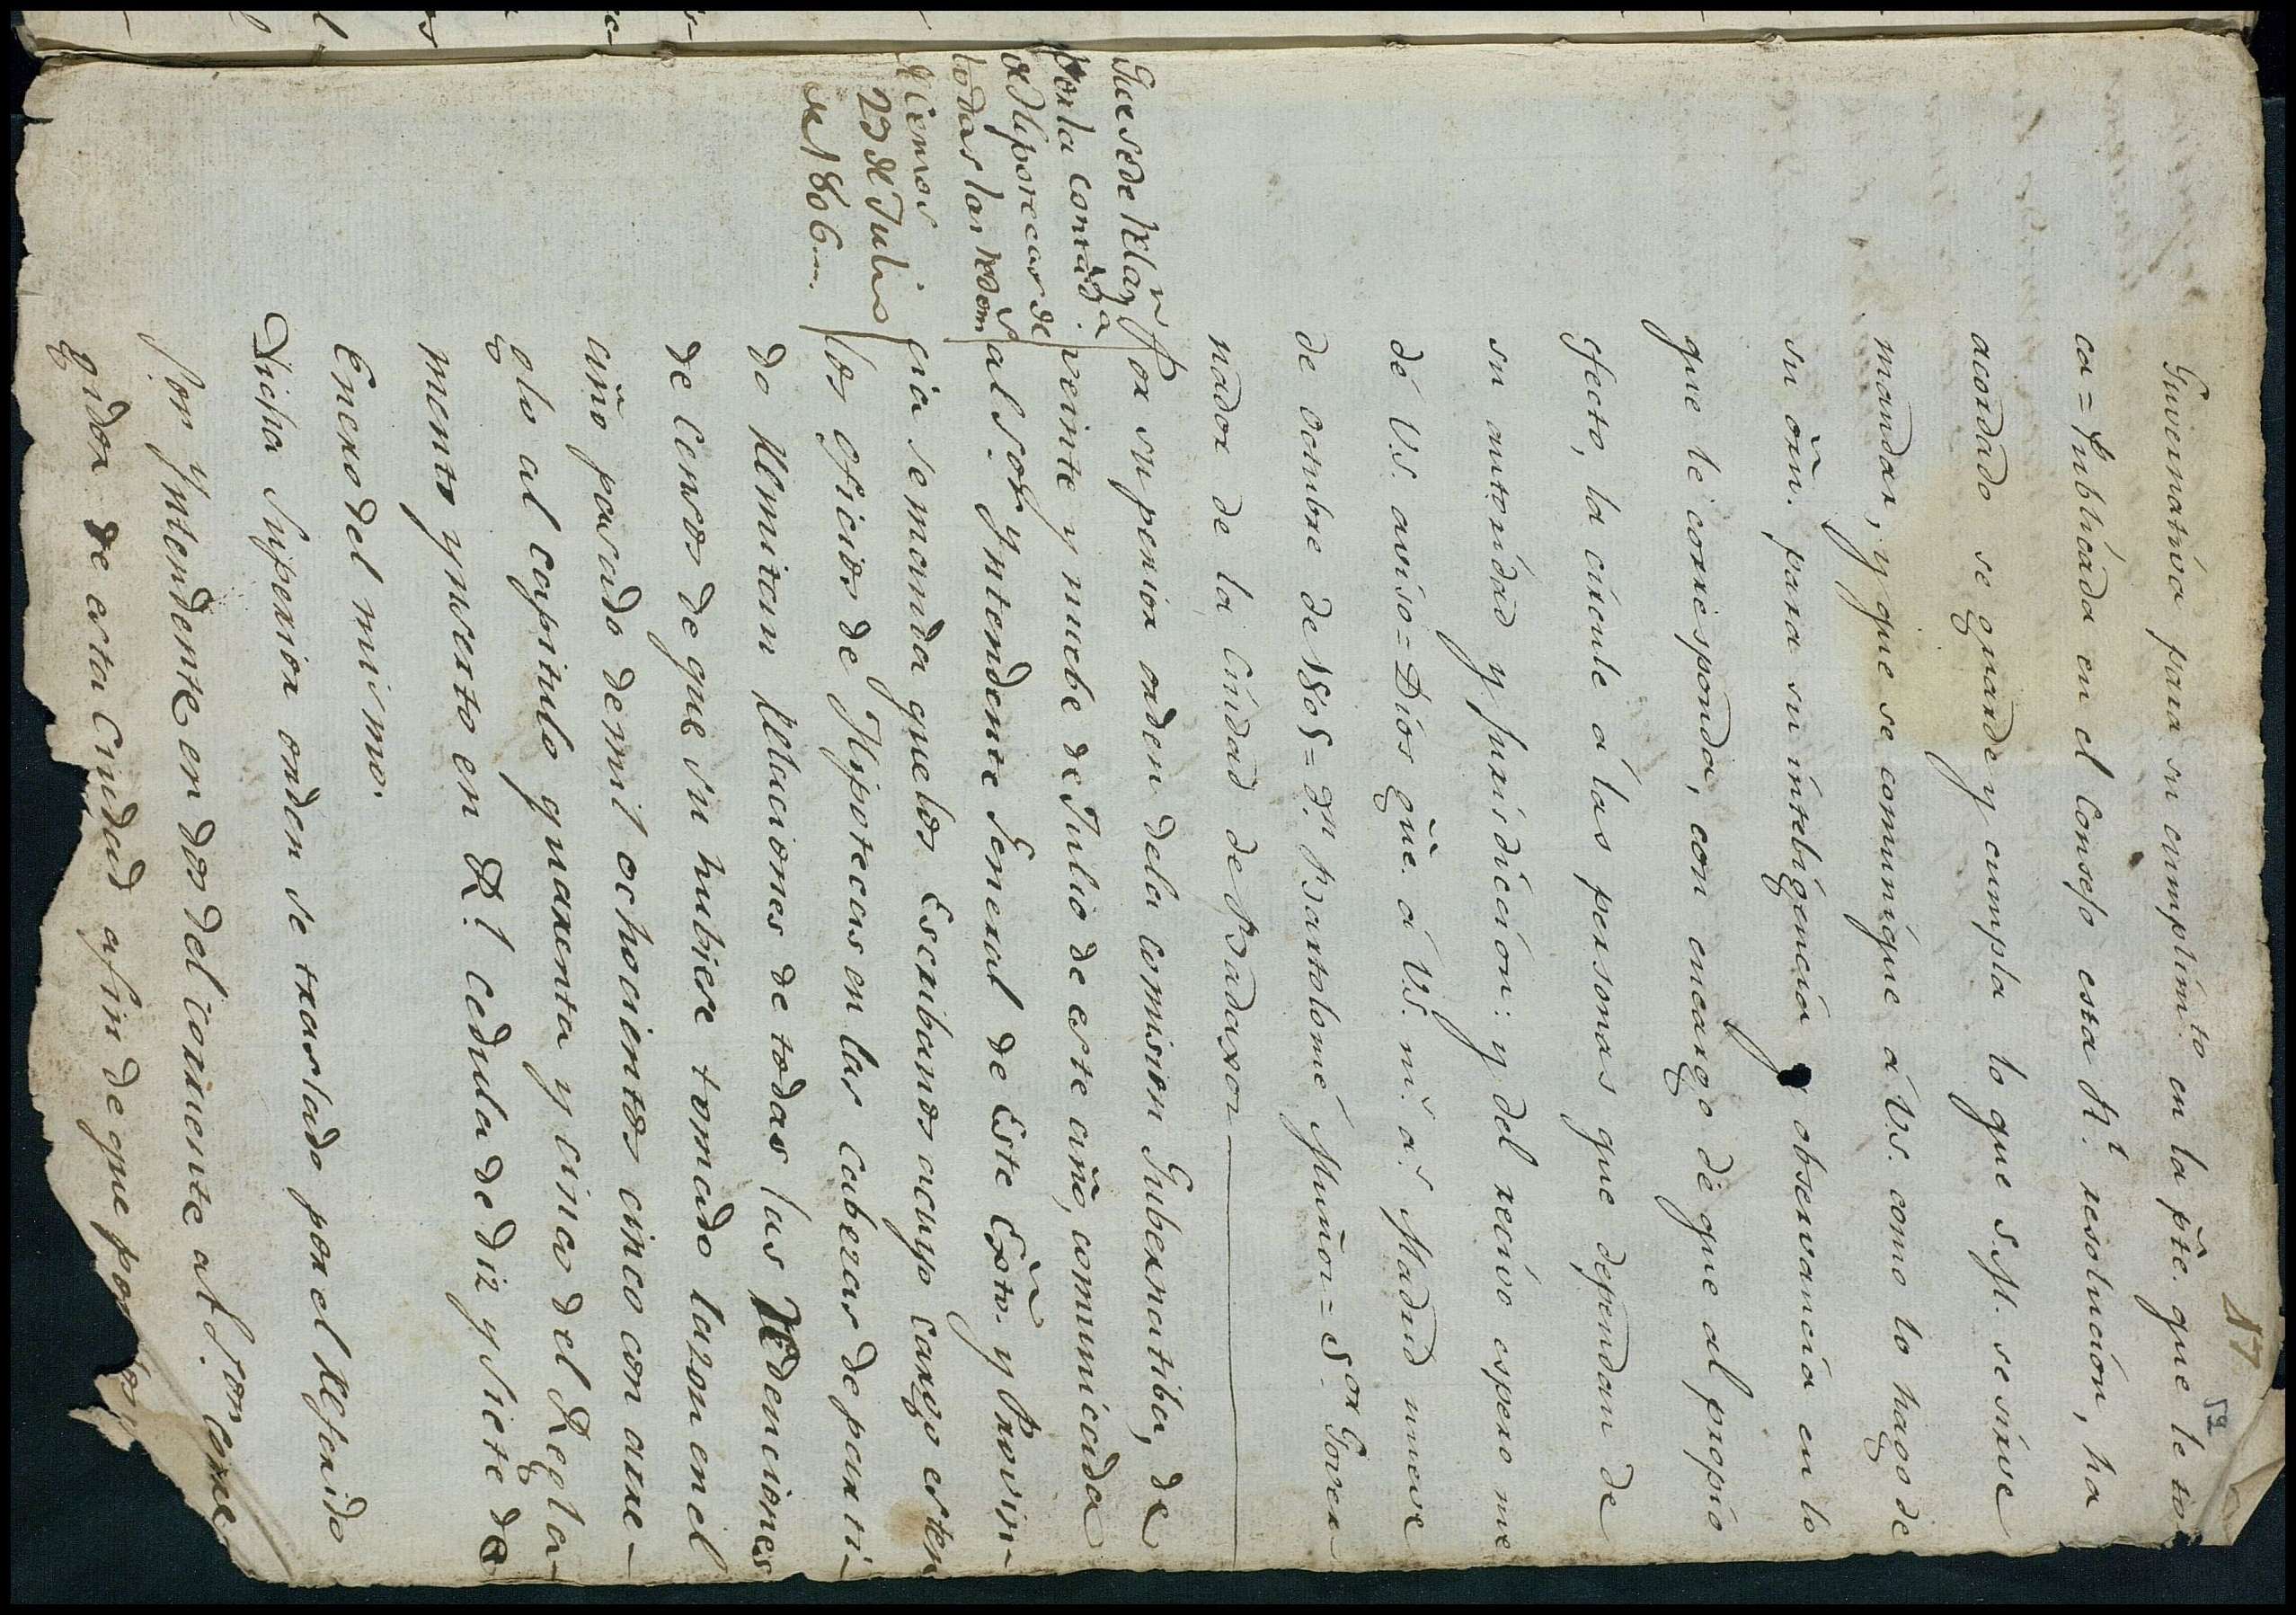 57
52
Guvernativa para su cumplim.to en la pte. que le to=
ca = Publicada en el Consejo esta R.l resolucion, ha
acordado se guarde y cumpla lo que S. M. se sirve
mandar, y que se comunique á V.S. como lo hago de
su orn. para su inteligencia y observancia en lo
que le corresponda, con encargo de que al propio
efecto, la circule á las personas que dependan de
su autoridad y jurisdiccion: y del recivo espero me
dé V.S. aviso = Dios gue. á V.S. m.s a.s Madrid nueve
de octubre de 1805 = D.n Bartolomé Muñoz = S.or Gover-
nador de la Ciudad de Badaxoz
Que se de Raz.n
por la contad.a
de Hipotecas de
todas las Redem.s
de Censos
29 de Julio
de 1806
Por superior orden dela comision Gubernatiba, de
veinte y nuebe de Julio de este año, comunicada
al S.or Yntendente General de Este Exto. y Provin-
cia se manda que los Escribanos acuyo cargo esten
los oficios de Hipotecas en las Cabezas de parti-
do Remitan Relaciones de todas las Redenciones
de Censos de que su hubiere tomado razon en el
año pasado demil ochocientos cinco con arre-
glo al Capitulo quarenta y cinco del Regla-
mento ynserto en R.l Cedula de diz y siete de
Enero del mismo.
Dicha Superior orden se traslado por el Referido
S.or Yntendente en dos del corriente al S.or Corre
gidor de esta Ciudad afin de que por los